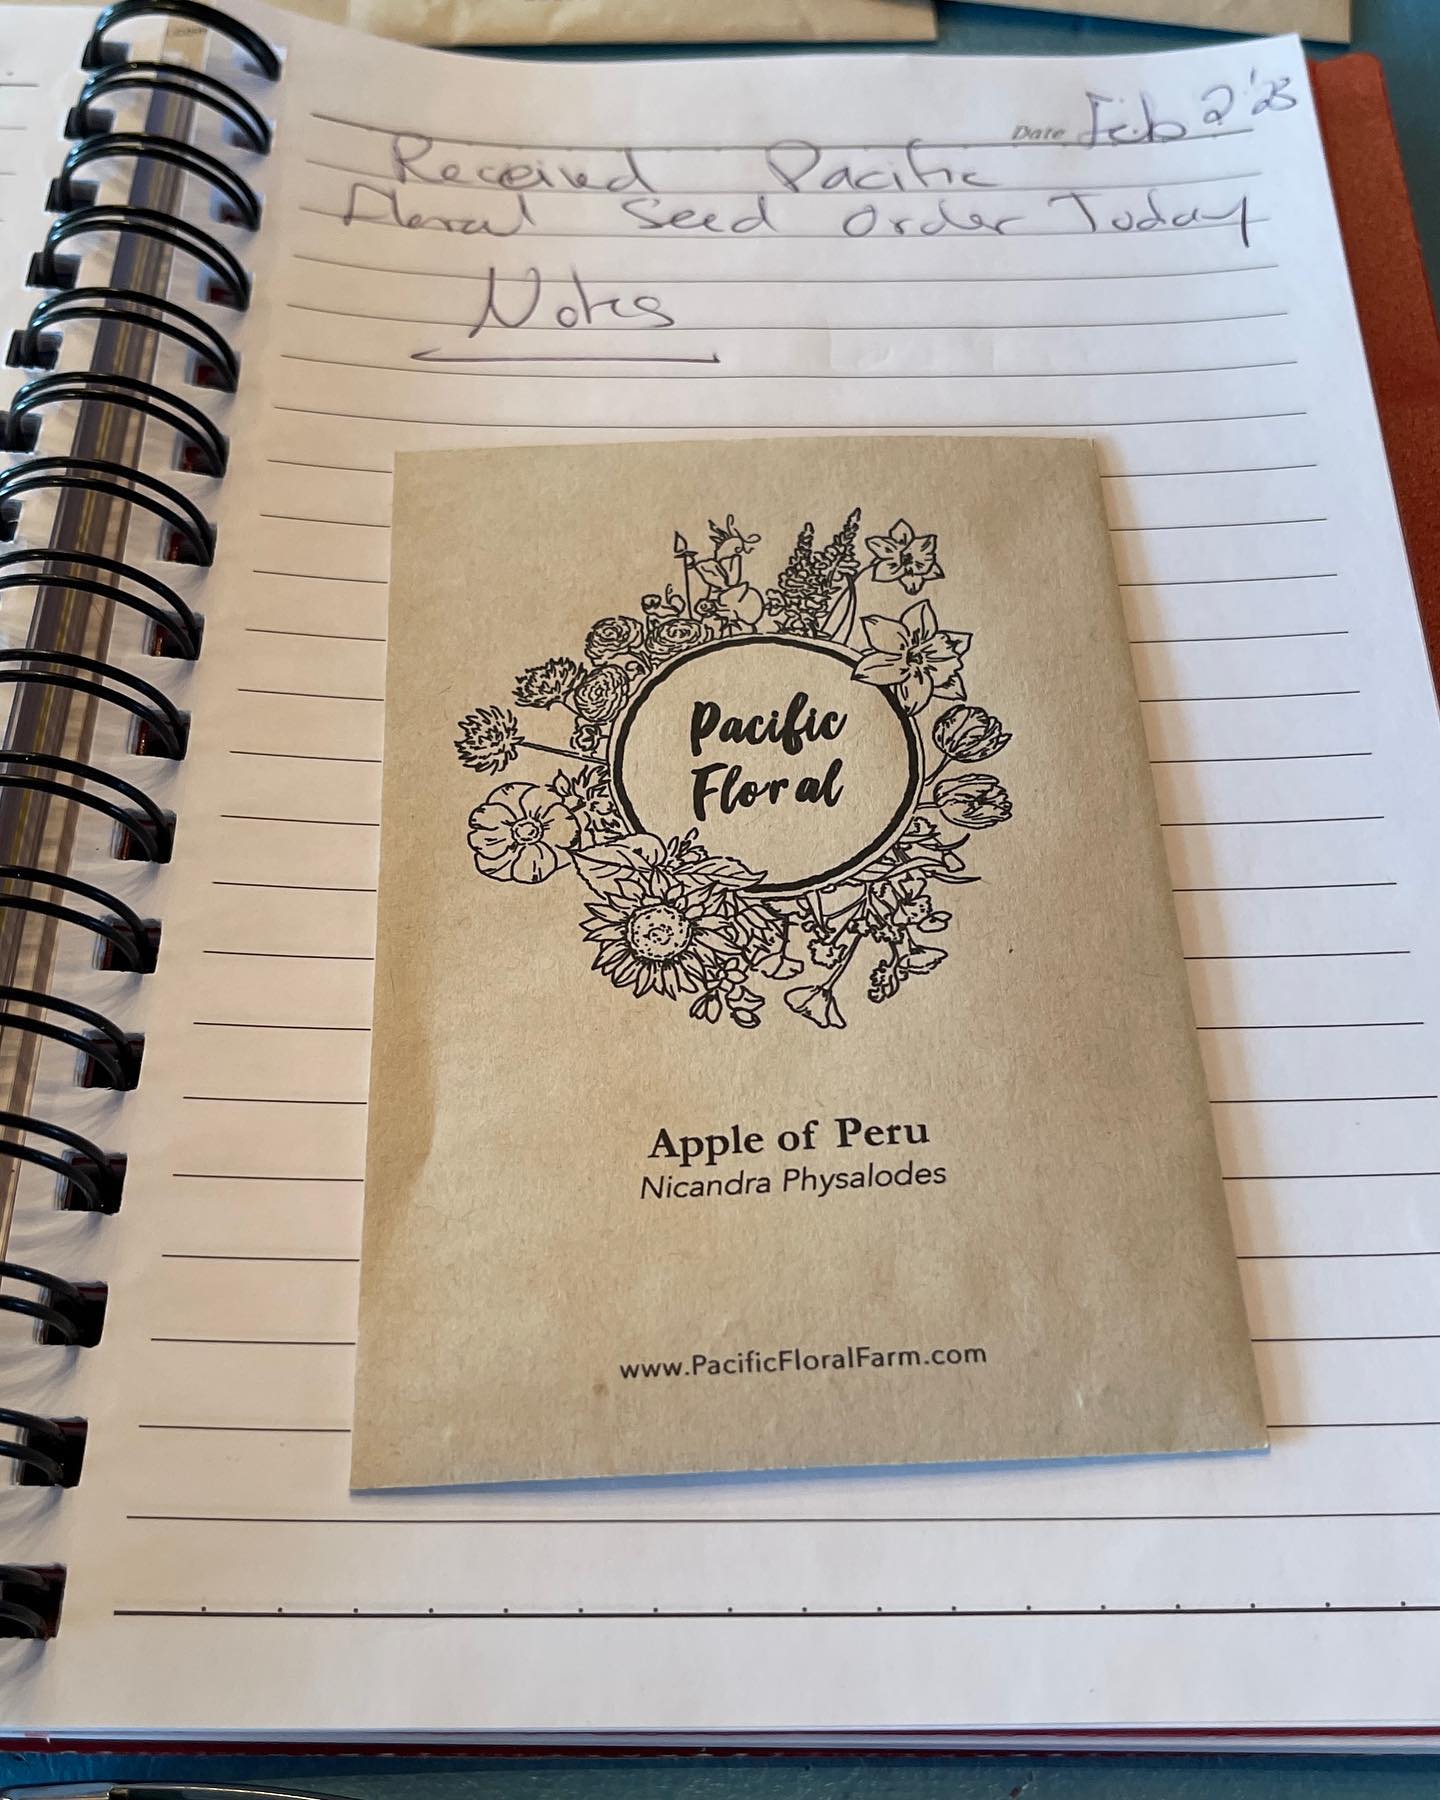 Date Feb 2 '23
Received Pacific
Floral Seed Order Today
Notes
Pacific
Floral
Apple of Peru
Nicandra Physalodes
www.PacificFloralFarm.com